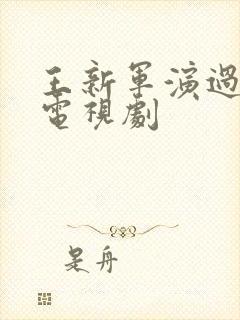 王新軍演過
電視劇
是舟